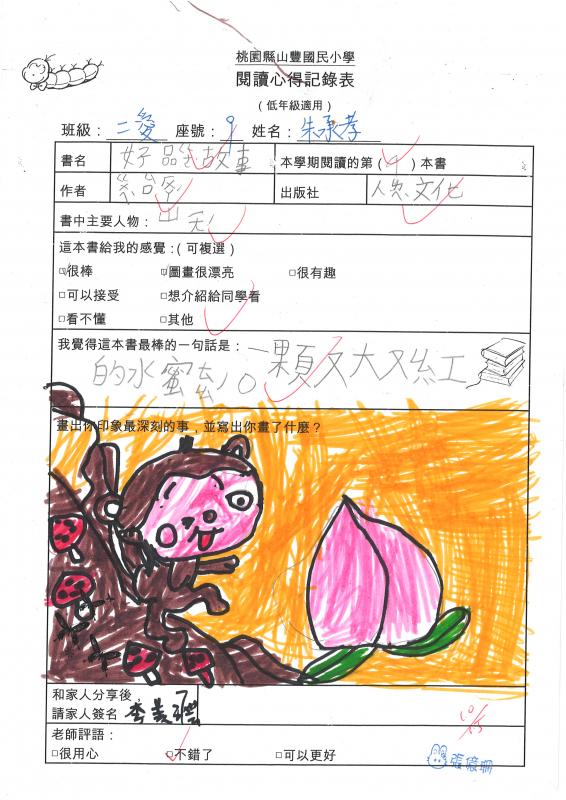 桃園縣山豐國民小學
閱讀心得記錄表
（低年級適用）
班級：二愛 座號：9 姓名：朱承孝
書名 好 故事 本學期閱讀的第（4）本書
作者 出版社 人類文化
書中主要人物：
這本書給我的感覺：（可複選）
□很棒 □圖畫很漂亮 □很有趣
□可以接受 □想介紹給同學看
□看不懂 □其他
我覺得這本書最棒的一句話是：一顆又大又紅
的水蜜桃。
畫出你印象最深刻的事，並寫出你畫了什麼？
和家人分享後，
請家人簽名 李美
老師評語：
□很用心 □不錯了 □可以更好
10/15